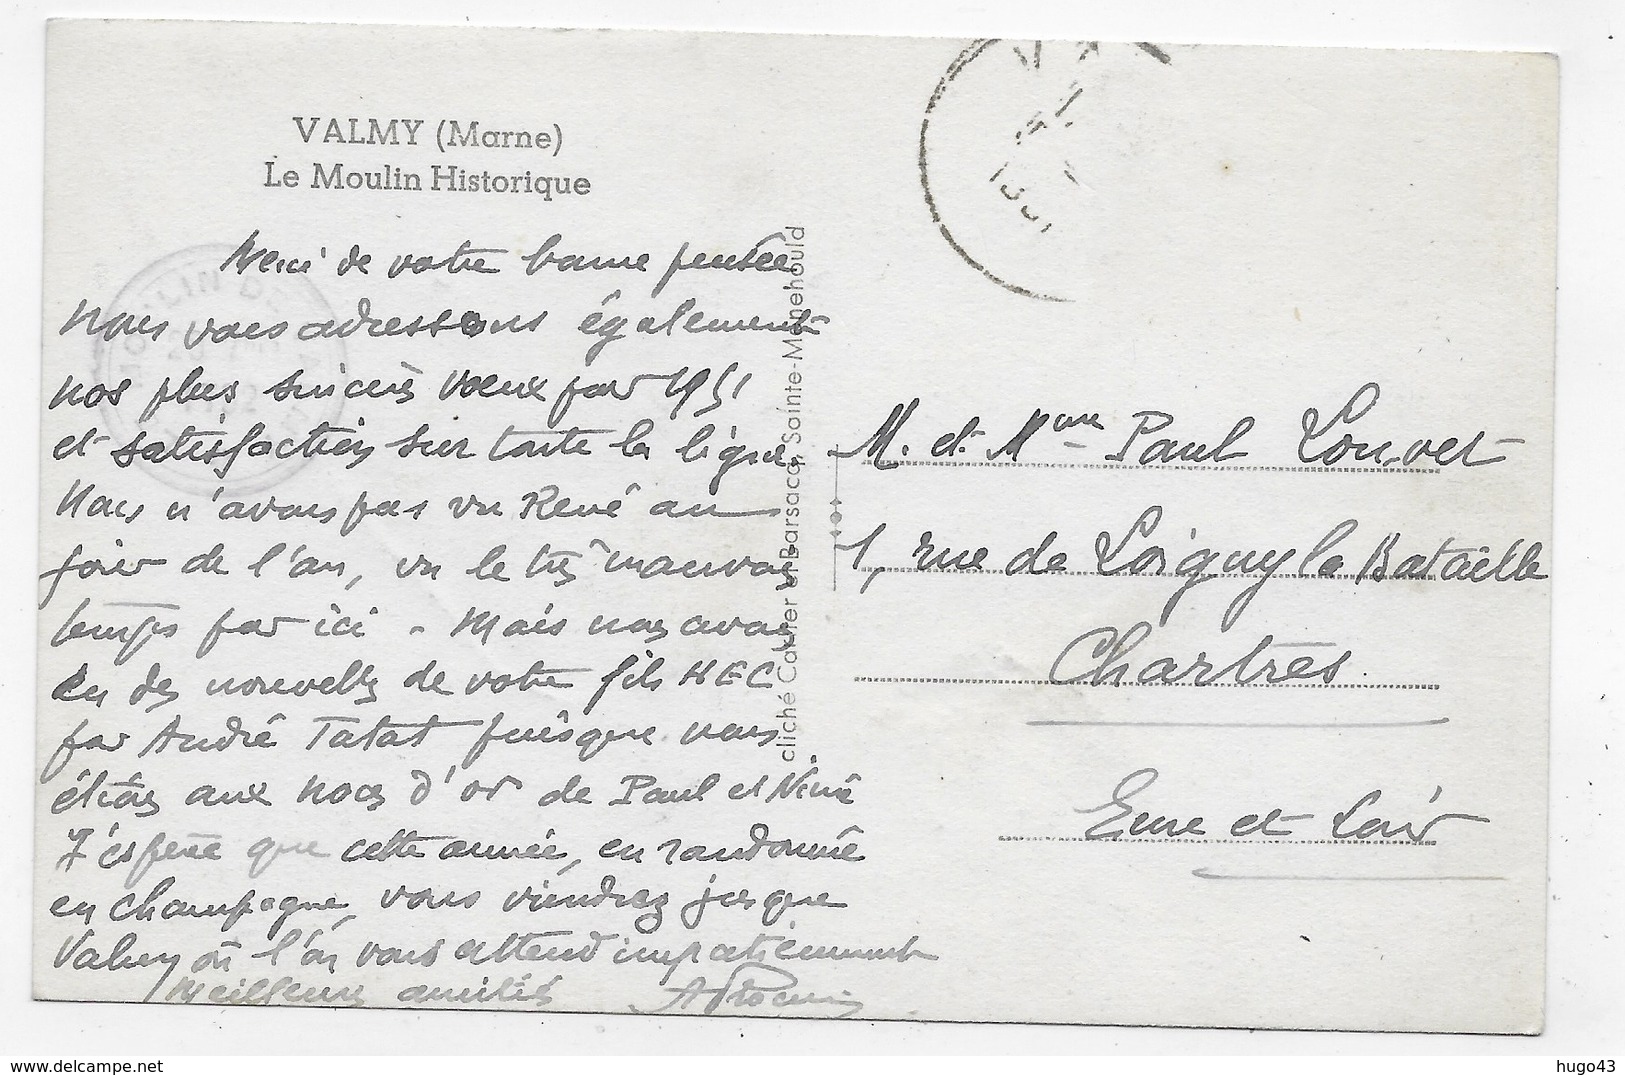 VALMY (Marne)
Le Moulin Historique
Merci de votre bonne pensée
nous vous adressons également
nos plus sincères vœux pour 1951
et satisfaction sur toute la ligne.
Nous n'avons pas vu René au
jour de l'an, vu le très mauvais
temps par ici - Mais nous avons
eu des nouvelles de votre fils HEC
par André Tatat puisque vous
étiez aux noces d'or de Paul et
J'espère que cette année, en randonnée
en Champagne, vous viendrez jusque
Valmy où l'on vous attend impatiemment
Meilleures amitiés
cliché Cartier et Barsacq, Sainte-Menehould
MOULIN DE
M. et Mme Paul Louvet
1, rue de Loigny la Bataille
Chartres
Eure et Loir
1951
hugo43